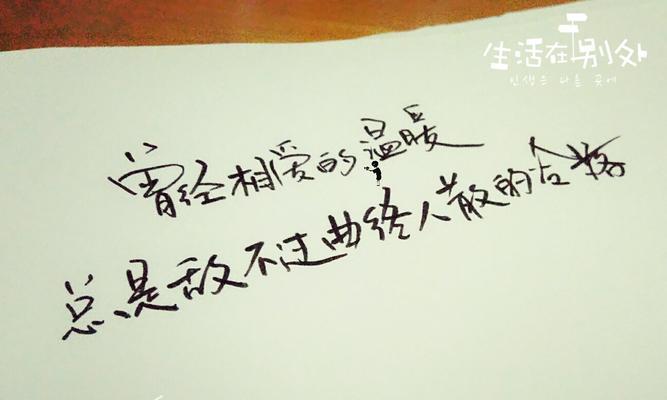 生活在别处
인생은 다른 곳에
曾经相爱的温暖
总是敌不过曲终人散的